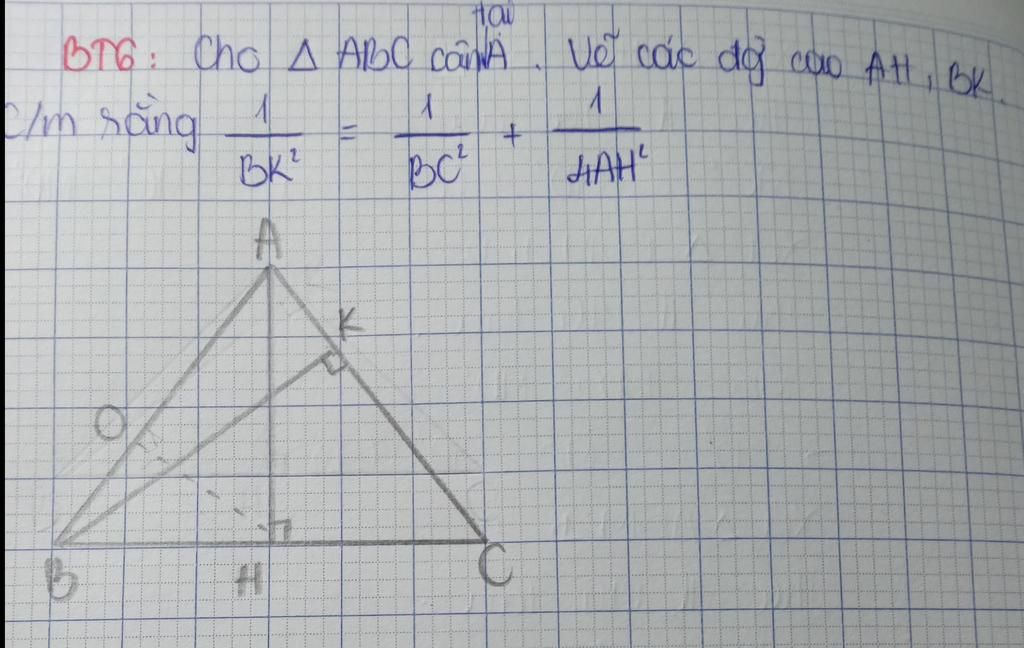 BT6: Cho Δ ABC cân tại A. Vẽ các đg̀ cao AH, BK.
C/m rằng 1/BK² = 1/BC² + 1/4AH²
A
K
O
B H C